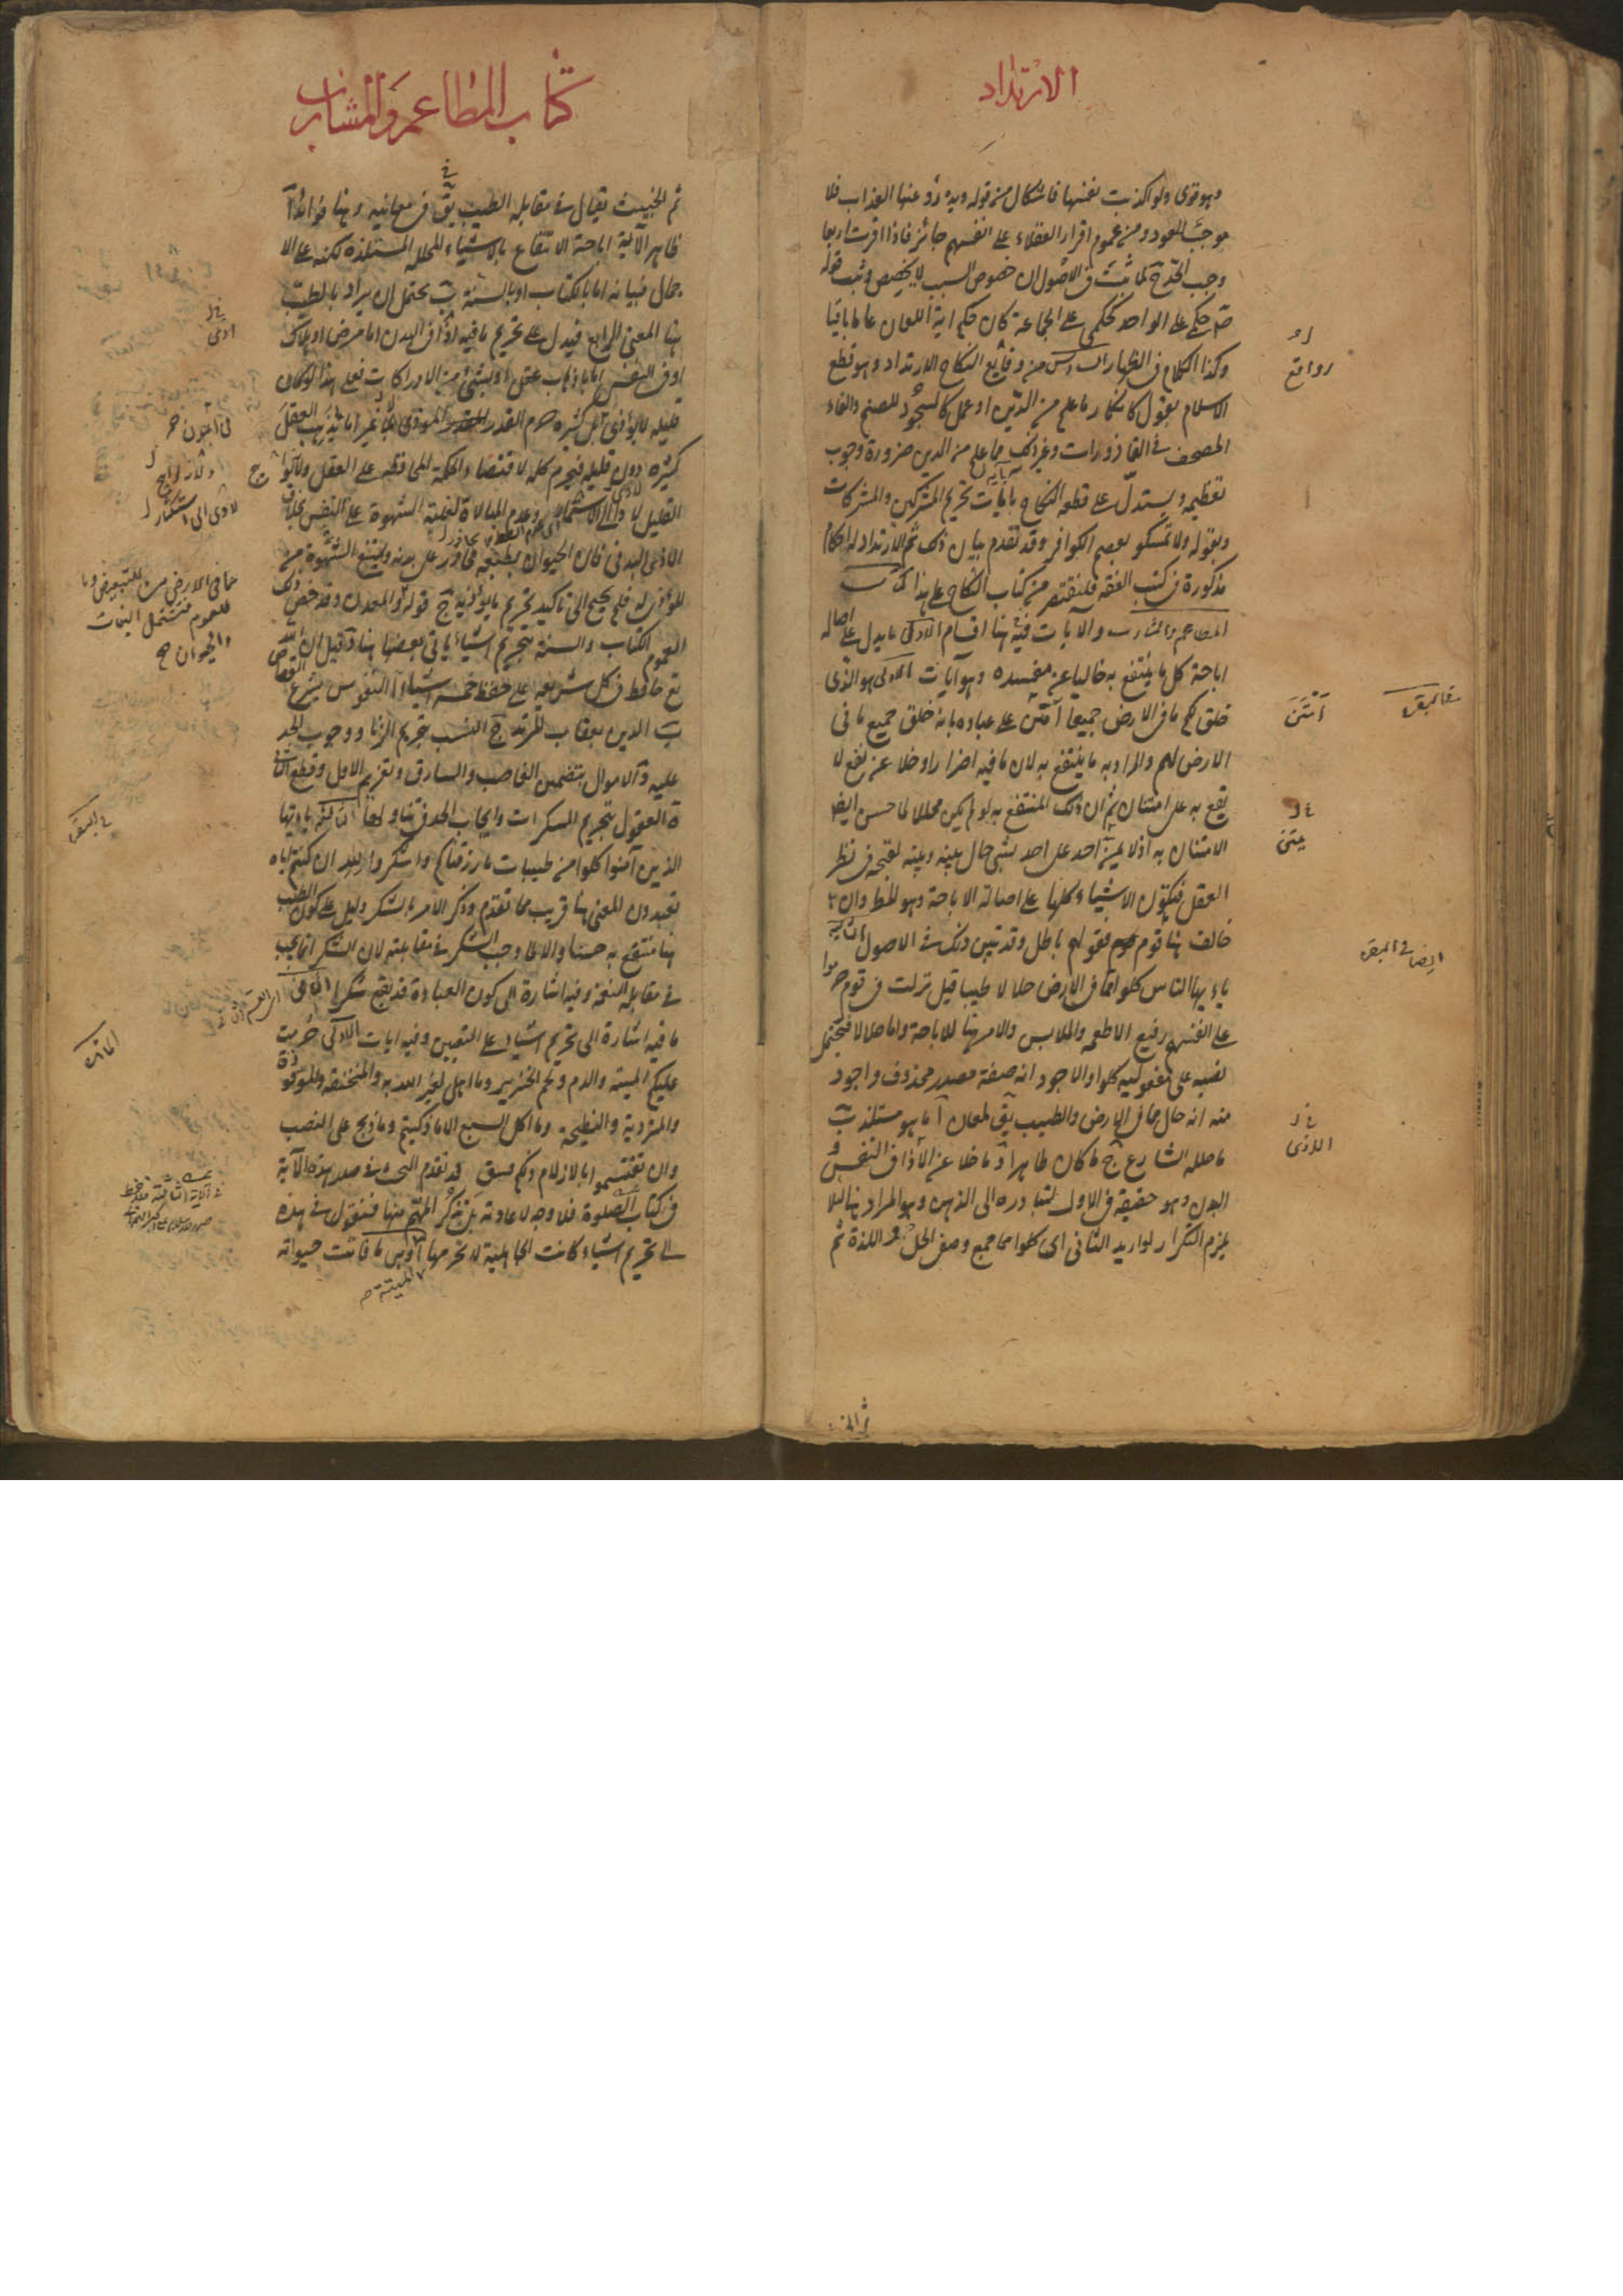 الارتداد
وهو قوى ولو اكذبت نفسها فاشكال من قوله ويدرؤ عنها العذاب فلا
موجب للعود ومن عموم اقرار العقلاء على انفسهم جائز فاذا اقرت اربعا
وجب الحد ج لما ثبت فى الاصول ان خصوص السبب لا يخصص وثبت قوله
ص حكمى على الواحد حكمى على الجماعة كان حكم اية اللعان عاما باقيا
وكذا الكلام فى الظهار السادس من وقايع النكاح الارتداد وهو قطع
الاسلام بقول كانكار ما علم من الدين او عمل كالسجود للصنم والقاء
المصحف فى القاذورات وغير ذلك مما علم من الدين ضرورة وجوب
تعظيمه ويستدل على قطعه النكاح بآيات تحريم المشركين والمشركات
وبقوله ولا تمسكو بعصم الكوافر وقد تقدم بيان ذلك ثم الارتداد له احكام
مذكورة فى كتب الفقه فلنقتصر من كتاب النكاح على هذا كتاب
المطاعم والمشارب والآيات فيه هنا اقسام الاول ما يدل على اصالة
اباحة كل ما ينتفع به خاليا عن مفسدة وهو آيات الاولى هو الذى
خلق لكم ما فى الارض جميعا امتن على عباده بانه خلق جميع ما فى
الارض لهم والمراد به ما ينتفع به لان ما فيه اضرارا وخلا عن نفع لا
يقع به على امتنان ثم ان ذلك المنتفع به لو لم يكن محللا لما حسن ايضا
الامتنان به اذ لا يمن احد على احد بشى حال بينه وبينه لقبحه فى نظر
العقل فتكون الاشياء كلها على اصالة الاباحة وهو المط وان
خالف هنا قوم فقولهم باطل وقد تبين ذلك فى الاصول الثانية
يا ايها الناس كلوا مما فى الارض حلالا طيبا قيل نزلت فى قوم حرموا
على انفسهم رفيع الاطعمة والملابس والامر هنا للاباحة واما حلالا فيحتمل
نصبه على مفعولية كلوا والاجود انه صفة مصدر محذوف واجود
منه انه حال مما فى الارض والطيب يق لمعان آ ما هو مستلذ ب
ما حلله الشارع ج ما كان طاهرا د ما خلا عن الاذى فى النفس و
البدن وهو حقيقة فى الاول لتبادره الى الذهن وهو المراد هنا لئلا
يلزم التكرار لو اريد الثانى اى كلوا مما جمع وصفى الحل واللذة ثم
ثم الخ
امتن
يمتن
ايضا فى البقرة
كتاب المطاعم والمشارب
ثم الخبيث يقال فى مقابلة الطيب يق فى معانيه وهنا فوائد آ
ظاهر الآية اباحة الانتفاع بالاشياء المحللة المستلذة لكنه على الا
جمال فبيانه اما بالكتاب او بالسنة ب يحتمل ان يراد بالطيب
هنا المعنى الرابع فيدل على تحريم ما فيه اذى فى البدن اما مرض او هلاك
او فى النفس اما باذهاب عقل او بشئ من الادراكات فعلى هذا لو كان
قليله لا يؤذى بل كثيره حرم القدر الموذى غير اما يذهب العقل
كثيره دون قليله فيحرم كله لاقتضاء الحكمة المحافظة على العقل
القليل وعدم المبالاة لغلبة الشهوة على النفس بخلاف
الاذى البدنى فان الحيوان بطبعه محاذر على بدنه ويمنع الشهوة من
المؤذى له فلم يحتج الى تاكيد تحريم ما يؤذيه ج قوله والمعدن وقد خص ذلك
العموم الكتاب والسنة بتحريم اشياء ياتى بعضها هنا د قيل ان الله
تع حافظ فى كل شريعة على حفظ خمسة اشياء آ النفوس بشرع القصاص
ب الدين بعقاب المرتد ج النسب بتحريم الزنا ووجوب الحد
عليه د الاموال بتضمين الغاصب والسارق وتعزير الاول وقطع الثانى
ه العقول بتحريم المسكرات وايجاب الحد فى تناولها الثالثة يا ايها
الذين آمنوا كلوا من طيبات ما رزقناكم واشكروا لله ان كنتم اياه
تعبدون المعنى هنا قريب مما تقدم وذكر الامر بالشكر دليل على كون الطيب
هنا منتفع به حسنا والا لما وجب الشكر فى مقابلته لان الشكر انما يجب
فى مقابلة النعمة وفيه اشارة الى كون العبادة قد تقع شكرا الثانى
ما فيه اشارة الى تحريم اشياء على التعيين وفيه ايات الاولى حرمت
عليكم الميتة والدم ولحم الخنزير وما اهل لغير الله به والمنخنقة والموقوذة
والمتردية والنطيحة وما اكل السبع الا ما ذكيتم وما ذبح على النصب
وان تقتسموا بالازلام ذلكم فسق قد تقدم البحث فى صدر هذه الآية
فى كتاب الصلوة فلا وجه لاعادته بل نذكر المهم منها فنقول فى هذه
تحريم اشياء كانت الجاهلية لا تحرمها آ وهى ما فاتت حيوته
الميتة
مما فى الارض من للتبعيض وما
للعموم فتشتمل النبات
والحيوان
فى البقرة
المائدة